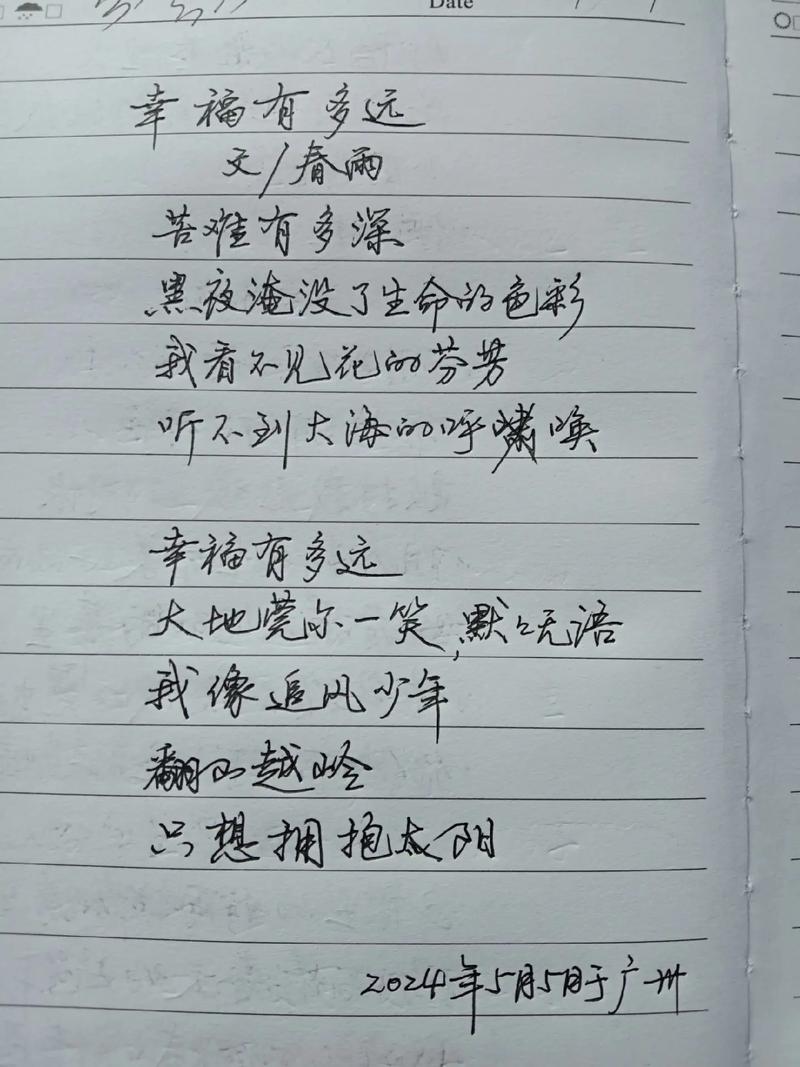 Date
幸福有多远
文/春雨
苦难有多深
黑夜淹没了生命的色彩
我看不见花的芬芳
听不到大海的呼啸唤
幸福有多远
大地莞尔一笑,默々无语
我像追风少年
翻山越岭
只想拥抱太阳
2024年5月5日于广州